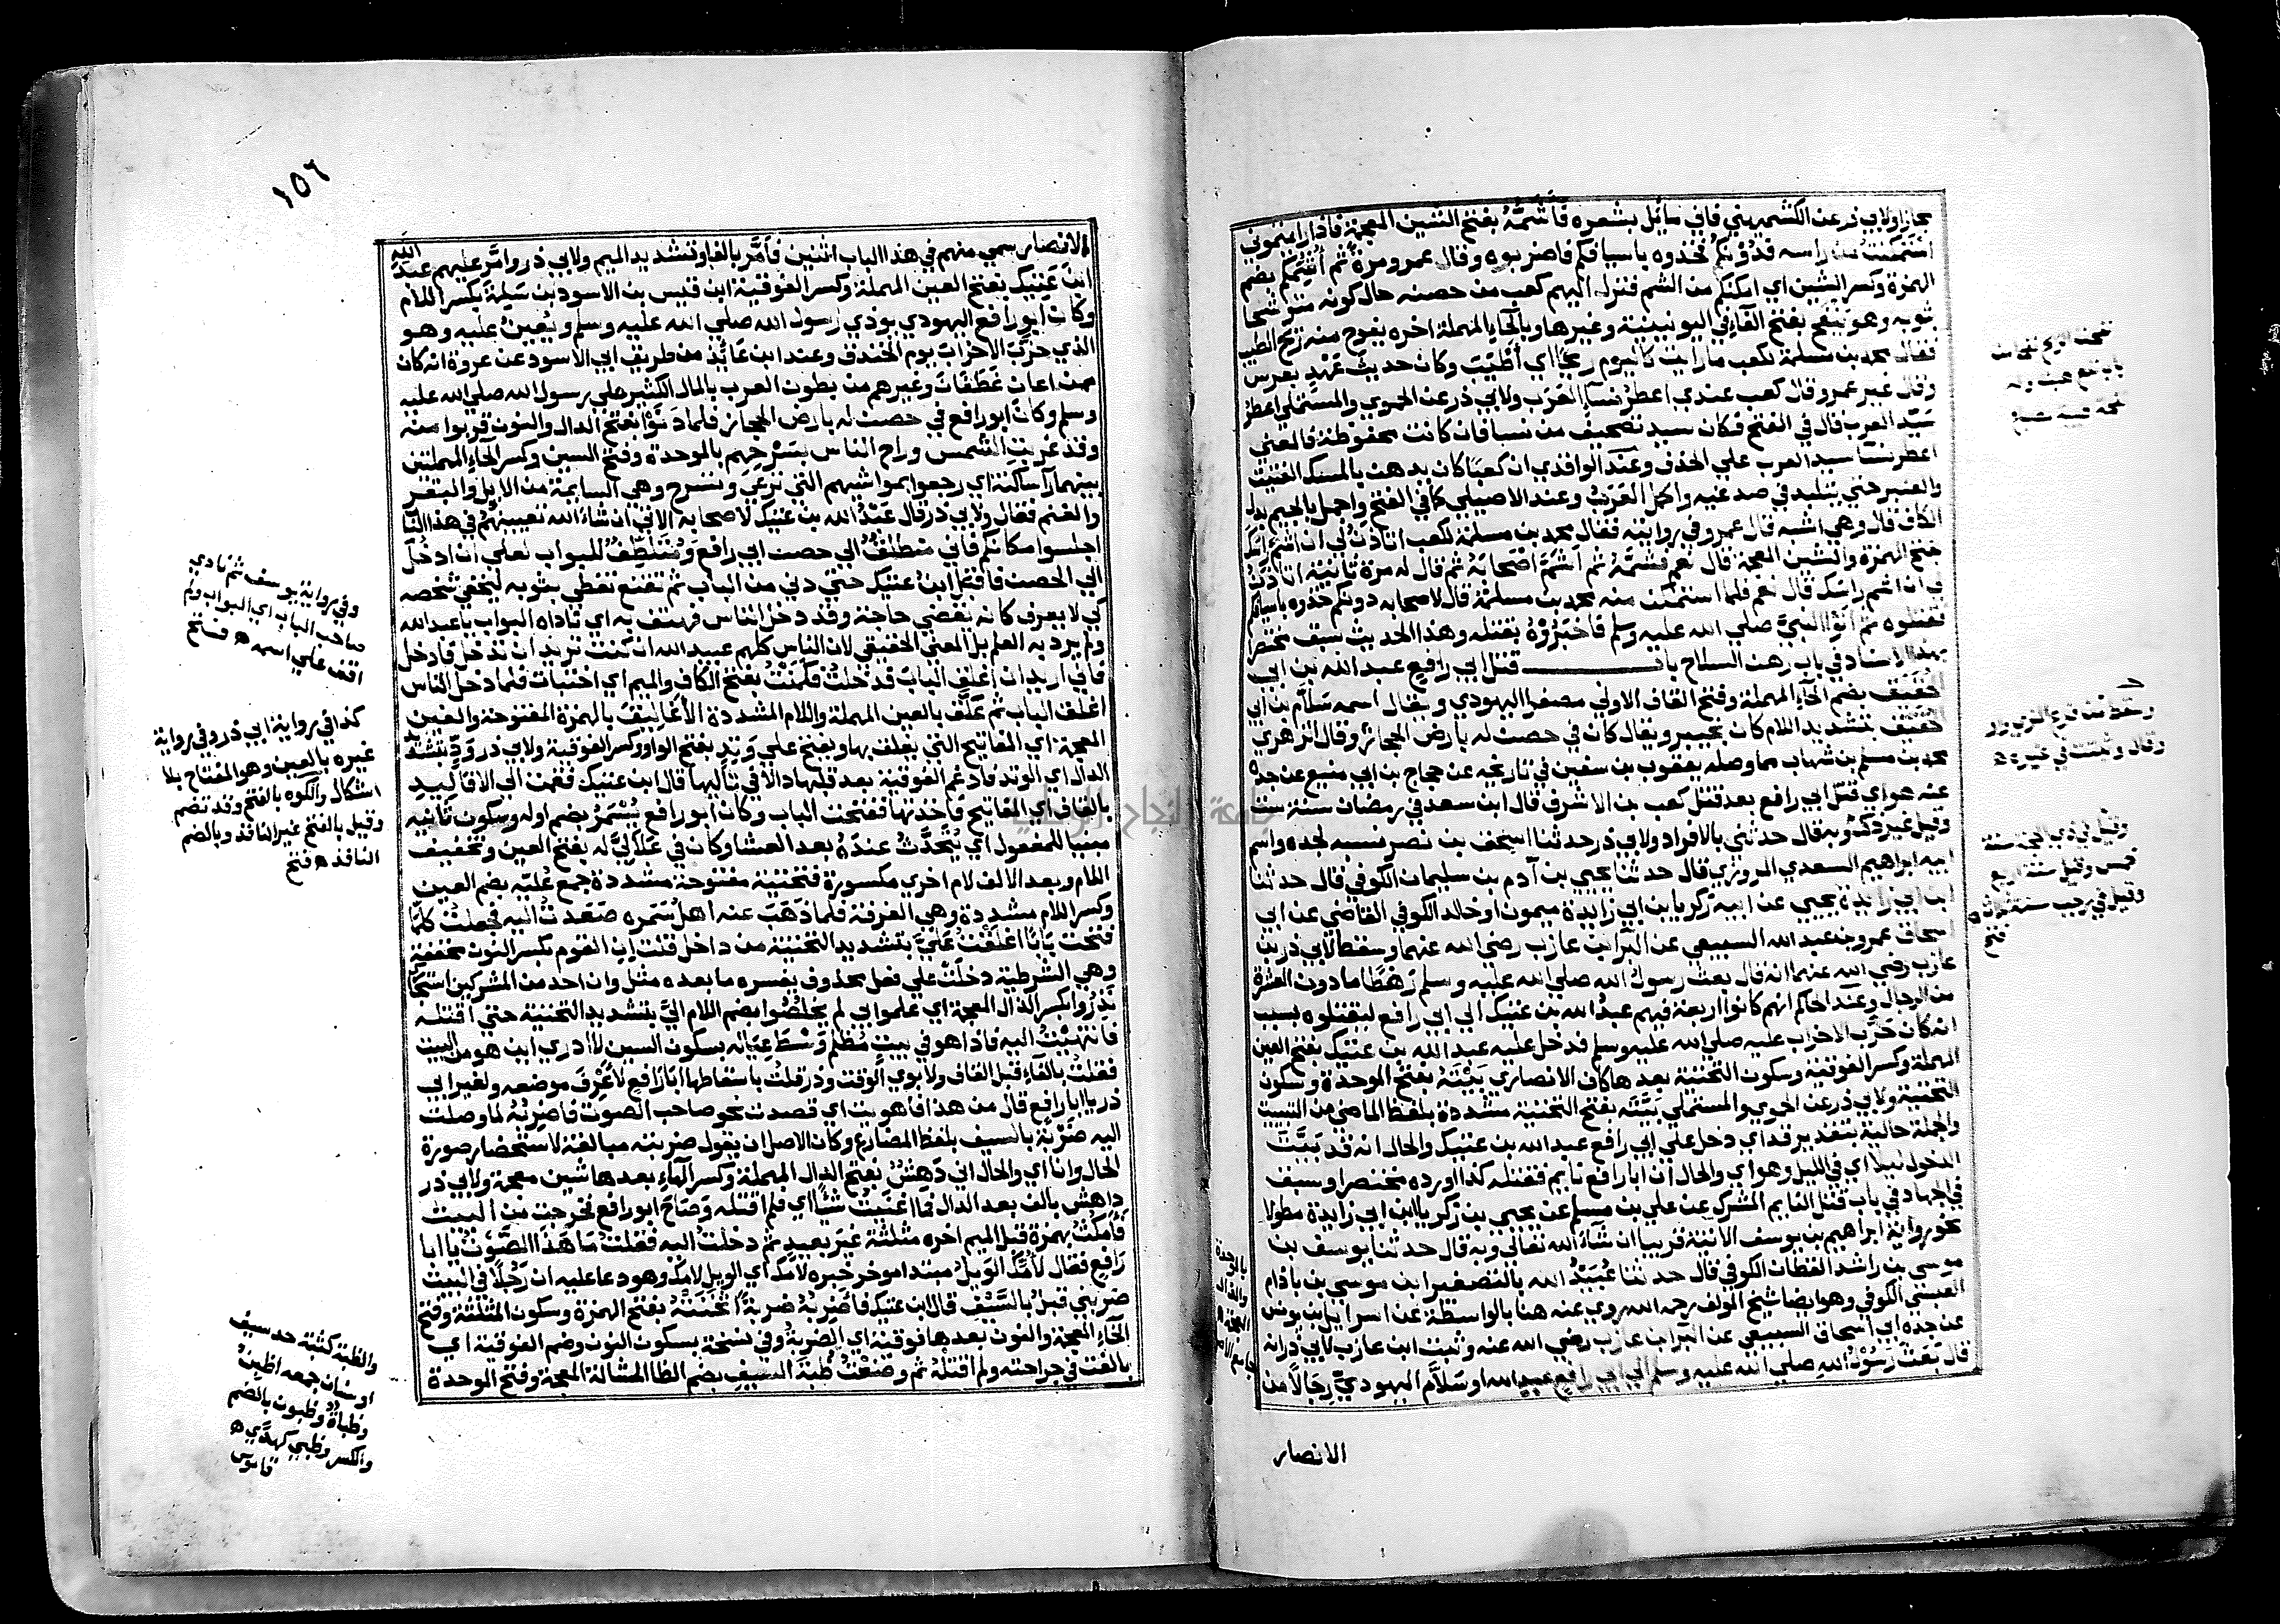 مجازا ولابي ذر عن الكشميهني فاني مائل بشعره فأشمّه بفتح الشين المعجمة فاذا رايتموني
استمكنت من راسه فدونكم فخذوه باسيافكم فاضربوه وقال عمرو مرة ثم أشمكم بضم
الهمزة وكسر الشين اي امكنكم من الشم فنزل اليهم كعب من حصنه حال كونه متوشحا
بثوبه وهو ينفح بفتح الفاء في اليونينية وغيرها وبالحاء المهملة اخره يفوح منه ريح الطيب
فقال محمد بن مسلمة لكعب ما رايت كاليوم ريحا اي أطيب وكان حديث عهد بعرس
وقال غير عمرو قال كعب عندي اعطر نسآء العرب ولابي ذر عن الحموي والمستملي اعطر
سيد العرب قال في الفتح فكان سيد تصحيف من نسا فان كانت محفوظة فالمعني
اعطر نسآء سيد العرب علي الحذف وعند الواقدي ان كعبا كان يدهن بالمسك الفتيت
والعنبر حتي يتلبد في صدغيه واكمل العرب وعند الاصيلي كما في الفتح واجمل بالجيم بدل
الكاف قال وهي اشبه قال عمرو في روايته فقال محمد بن مسلمة لكعب اتاذن لي ان اشم راسك
بفتح الهمزة والشين المعجمة قال نعم فشمّه ثم اشمّ اصحابه ثم قال له مرة ثانية اتاذن
لي ان اشم راسك قال نعم فلما استمكن منه محمد بن مسلمة قال لاصحابه دونكم خذوه باسيافكم
فقتلوه ثم أتوا النبيّ صلي الله عليه وسلم فاخبروه بقتله وهذا الحديث سبق مختصر
بهذا الاسناد في باب رهن السلاح باب قتل ابي رافع عبد الله بن ابي
الحقيق بضم الحآء المهملة وفتح القاف الاولي مصغرا اليهودي ويقال اسمه سلام بن ابي
الحقيق بتشديد اللام كان بخيبر ويقال كان في حصن له بارض الحجاز وقال الزهري
محمد بن مسلم بن شهاب مما وصله يعقوب بن سفين في تاريخه عن حجاج بن ابي منيع عن جده
عنه هو اي قتل ابي رافع بعد قتل كعب بن الاشرف قال ابن سعد في رمضان سنة ست
وقيل غير ذلك وبه قال حدثني بالافراد ولابي ذر حدثنا اسحق بن نصر نسبه لجده واسم
ابيه ابراهيم السعدي المروزي قال حدثنا يحيي بن آدم بن سليمان الكوفي قال حدثنا
ابن ابي زايدة يحيي عن ابيه زكريا بن ابي زايدة ميمون او خالد الكوفي القاضي عن ابي
اسحاق عمرو بن عبد الله السبيعي عن البرآ ابن عازب رضي الله عنهما وسقط لابي ذر بن
عازب رضي الله عنهما انه قال بعث رسول الله صلي الله عليه وسلم رهطا ما دون العشرة
من الرجال وعند الحاكم انهم كانوا اربعة فيهم عبد الله بن عتيك الي ابي رافع ليقتلوه بسبب
انه كان حزّب الاحزاب عليه صلي الله عليه وسلم فدخل عليه عبد الله بن عتيك بفتح العين
المهملة وكسر الفوقية وسكون التحتية بعدها كاف الانصاري بيته بفتح الموحدة وسكون
التحتية ولابي ذر عن الحموي والمستملي بيّته بفتح التحتية مشددة بلفظ الماضي من التبييت
والجملة حالية بتقدير قد اي دخل علي ابي رافع عبد الله بن عتيك والحال انه قد بيّت
الدخول ليلا اي في الليل وهو اي والحال ان ابا رافع نايم فقتله كذا اورده مختصرا وسبق
في الجهاد في باب قتل النايم المشرك عن علي بن مسلم عن يحيي بن زكريا ابن ابي زايدة مطولا
نحو رواية ابراهيم بن يوسف الاتية قريبا ان شآء الله تعالي وبه قال حدثنا يوسف بن
موسي بن راشد القطان الكوفي قال حدثنا عبيد الله بالتصغير ابن موسي بن باذام
العبسي الكوفي وهو ايضا شيخ المولف رحمه الله روي عنه هنا بالواسطة عن اسراييل بن يونس
عن جده ابي اسحاق السبيعي عن البرآ ابن عازب رضي الله عنه وثبت ابن عازب لابي ذر انه
قال بعث رسول الله صلي الله عليه وسلم الي ابي رافع عبد الله او سلام اليهوديّ رجالا من
الانصار
وقيل في ذي الحجة سنة
خمس وقيل سنة اربع
وقيل في رجب سنة ثلاث
فتح
١٥٦
الانصار سمي منهم في هذا الباب اثنين فأمّر بالفا وتشديد الميم ولابي ذر وامّر عليهم عبد الله
ابن عتيك بفتح العين المهملة وكسر الفوقية ابن قيس بن الاسود بن سلمة بكسر اللام
وكان ابو رافع اليهودي يوذي رسول الله صلي الله عليه وسلم ويعين عليه وهو
الذي حزّب الاحزاب يوم الخندق وعند ابن عائذ من طريق ابي الاسود عن عروة انه كان
ممن اعان غطفان وغيرهم من بطون العرب بالمال الكثير علي رسول الله صلي الله عليه
وسلم وكان ابو رافع في حصن له بارض الحجاز فلما دنوا بفتح الدال والنون قربوا منه
وقد غربت الشمس وراح الناس بسرحهم بالموحدة وفتح السين وكسر الحاء المهملتين
بينهما رآ ساكنة اي رجعوا بمواشيهم التي ترعي وتسرح وهي السايمة من الابل والبقر
والغنم فقال ولابي ذر قال عبد الله بن عتيك لاصحابه الاتي ان شاء الله تعيينهم في هذا الباب
اجلسوا مكانكم فاني منطلق الي حصن ابي رافع ومتلطف للبواب لعلي ان ادخل
الي الحصن فاقبل ابن عتيك حتي دني من الباب ثم تقنع تغطي بثوبه ليخفي شخصه
كي لا يعرف كانه يقضي حاجة وقد دخل الناس فهتف به اي ناداه البواب يا عبد الله
ولم يرد به العلم بل المعني الحقيقي لان الناس كلهم عبيد الله ان كنت تريد ان تدخل فادخل
فاني اريد ان اغلق الباب فدخلت فكمنت بفتح الكاف والميم اي اختبات فلما دخل الناس
اغلق الباب ثم علق بالعين المهملة واللام المشددة الأغاليق بالهمزة المفتوحة والغين
المعجمة اي المفاتيح التي يغلق بها ويفتح علي وتد بفتح الواو وكسر الفوقية ولابي ذر ودّ بتشديد
الدال اي الوتد فادغم الفوقية بعد قلبها دالا في تاليها قال ابن عتيك فقمت الي الاقاليد
بالقاف اي المفاتيح فاخذتها ففتحت الباب وكان ابو رافع يسمر بضم اوله وسكون ثانيه
مبنيا للمفعول اي يتحدث عنده بعد العشا وكان في علاليّ له بفتح العين وتخفيف
اللام وبعد الالف لام اخري مكسورة فتحتية مفتوحة مشددة جمع علية بضم العين
وكسر اللام مشددة وهي الغرفة فلما ذهب عنه اهل سمره صعدت اليه فجعلت كلما
فتحت بابا اغلقت عليّ بتشديد التحتية من داخل قلت ان القوم بكسر النون مخففة
وهي الشرطية دخلت علي فعل محذوف يفسره ما بعده مثل وان احد من المشركين استجارك
نذروا بكسر الذال المعجمة اي علموا بي لم يخلصوا بضم اللام اليّ بتشديد التحتية حتي اقتله
فانتهيت اليه فاذا هو في بيت مظلم وسط عياله بسكون السين لا ادري اين هو من البيت
فقلت بالفآء قبل القاف ولابوي الوقت وذر قلت باسقاطها ابا رافع لاعرف موضعه ولغير ابي
ذر يا ابا رافع قال من هذا فاهويت اي قصدت نحو صاحب الصوت فاضربه لما وصلت
اليه ضربة بالسيف بلفظ المضارع وكان الاصل ان يقول ضربته مبالغة لاستحضار صورة
الحال وانا اي والحال اني دهش بفتح الدال المهملة وكسر الهاء بعدها شين معجمة ولابي ذر
داهش بالف بعد الدال فما اغنيت شيئا اي فلم اقتله وصاح ابو رافع فخرجت من البيت
فأمكث بهمزة قبل الميم اخره مثلثة غير بعيد ثم دخلت اليه فقلت ما هذا الصوت يا ابا
رافع فقال لأمّك الويل مبتدا موخر خبره لامك اي الويل لامك وهو دعا عليه ان رجلا في البيت
ضربني قبل بالسيف قال ابن عتيك فاضربه ضربة اثخنته بفتح الهمزة وسكون المثلثة وفتح
الخآء المعجمة والنون بعدها فوقية اي الضربة وفي نسخة بسكون النون وضم الفوقية اي
بالغت في جراحته ولم اقتله ثم وضعت ظبة السيف بضم الظا المشالة المعجمة وفتح الموحدة
وفي رواية يوسف ثم نادي
صاحب الباب اي البواب ولم
اقف علي اسمه ه فتح
كذا في رواية ابي ذر وفي رواية
غيره بالعين وهو المفتاح بلا
اشكال والكوه بالفتح وقد تضم
وقيل بالفتح غير النافذ وبالضم
النافذ ه فتح
والظبة كثبة حد سيف
او سنان جمعه اظب
وظباة وظبون بالضم
والكسر وظبي كهدي ه
قاموس